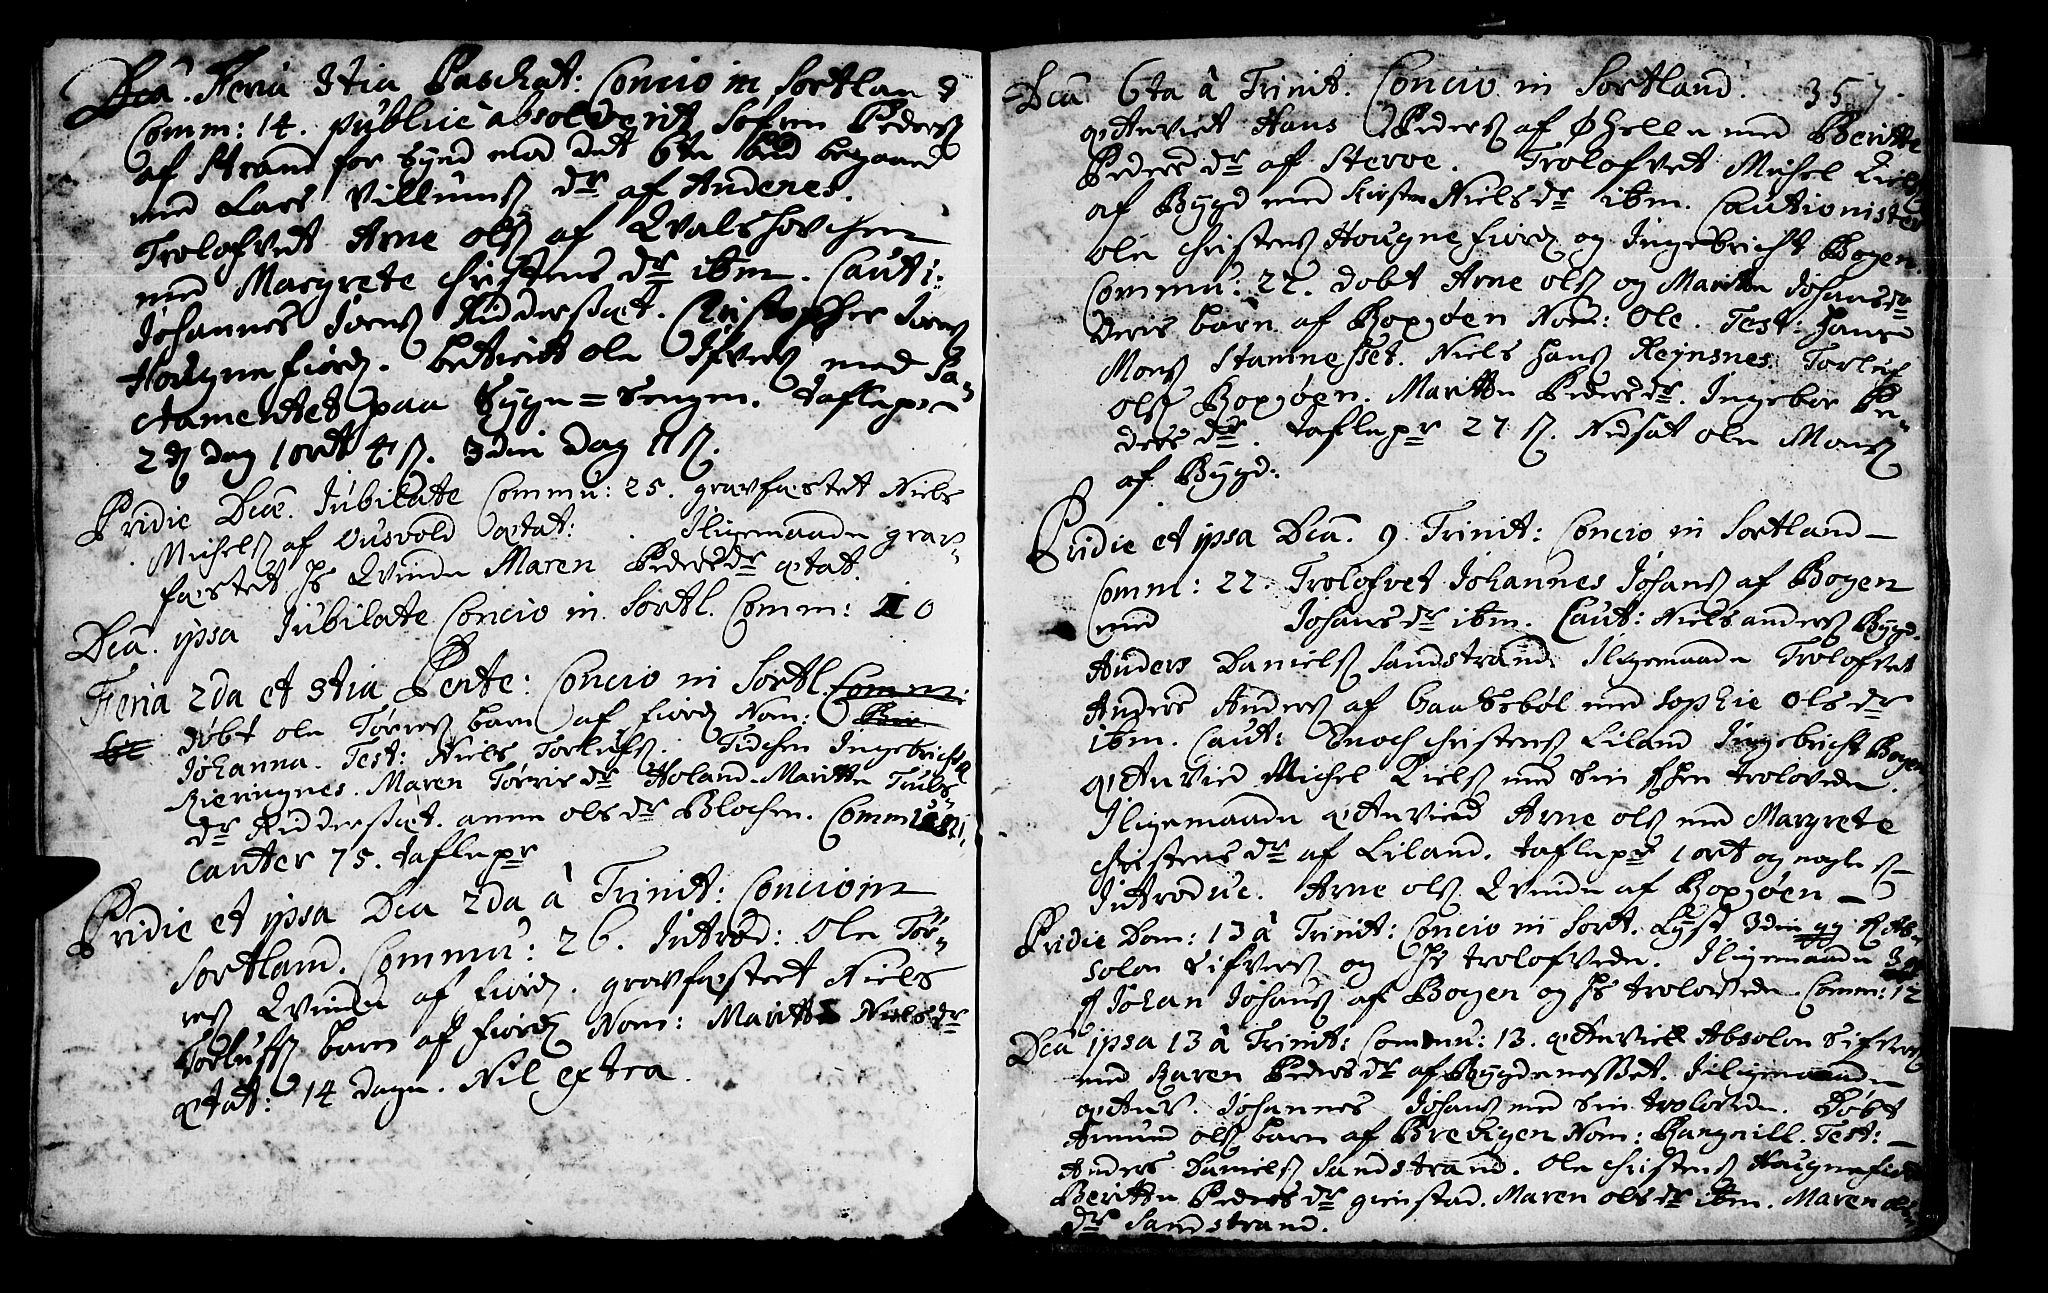 Dca. Feria 3tia Paschat: Concio in Sortland
Comm: 14. publicè absolverit Søfren Peders
af Strand for Synd mod det 6te bud begaaed
med Lars Villums dr af Andenes.
Trolofvet Arne ols af
med Margrete Christens dr ibm. Cauti:
Johannes Joens Kidderssæt. Christopher Joens
Hougnefiord. betient ole Ifvers med Sa-
cramentet paa Syge=Sengen. Taflep:
2d dag 1 ort 4 s. 3die dag 11 s.
Pridie Dca. Jubilate Commu: 25. gravfæstet Niels
Michels af Ousvold ætat: . Iligemaade grav-
fæstet hs Qvinde Maren Peders dr ætat.
Dca. ipsa Jubilate Concio in Sortl. Comm: 10
Feria 2da et 3tia Pente: Concio in Sortl. Comm:
døbt ole Tørres barn af fiord Nom:
Johanna. Test: Niels Torlufs. Tidchen Ingebrichts
Kieringnes. Maren Tørris dr Holand. Maritte Truls
dr Kidderssæt. anne ols dr Blochen. Communi-
canter 75. taflepr
Pridie et ipsa Dca 2da à Trinit: Concio in
Sortland. Commu: 26. Introd: Ole Tør-
res Qvinde af fiord. gravfæstet Niels
Torlufs barn af fiord Nom: Maritte Niels dr
ætat: 14 dage. Nil extra.
Dca 6ta à Trinit. Concio in Sortland. 357.
Hans Peders af Øhelle med Beritte
Peders dr af Sterve. Trolofvet Michel Kiels
af Bygd med Kirsten Niels dr ibm. Cautionister
ole Christens Hougnefiord og Ingebricht Bogen.
Commu: 27. dobt Arne ols og Maritte Johans dr
Deris barn af Boxøen Nom: Ole. Test: Hans
Mons Stamnesset. Niels Hans Reynsnes. Torluf
Ols Boxøen. Maritte Peders dr. Ingebor Pe-
ders dr. taflepr 27 s. Nedsat ole Mons
af Bygd.
Pridie et ipsa Dca. 9 Trinit: Concio in Sortland
Comm: 22. Trolofvet Johannes Johans af Bogen
med Johans dr ibm. Caut: Niels anders Bygd.
Anders Daniels Sandstrand. Iligemaade Trolofvet
Anders Anders af Gaatsbøl med Sophie Ols dr
ibm. Caut: Enoch Christens Liland Ingebricht Bogen
Michel Kiels med sin trolovede.
Iligemaade Arne ols med Margrete
Christens dr af Liland. taflepr 1 ort og nogle s
Introduc. Arne ols Qvinde af Boxøen
Pridie Dom: 13 à Trinit: Concio in Sort. Lyst 3die gg f Ab-
solon Sifvers og hs trolofvede. Iligemaade 3
f Johan Johans af Bogen og hs trolovede. Comm: 12
Dca ipsa 13 à Trinit: Commu: 13. Absolon Sifvers
med Karen Peders dr af Bygdenesset. Iligemaade
Johannes Johans med sin trolovede. Døbt
Amund ols barn af Brevigen Nom: Rangnill. Test:
Anders Daniels Sandstrand. Ole Christens Hougnefiord
Beritte Peders dr grinstad. Maren ols dr ibm. Maren ols
dr Sandstrand.